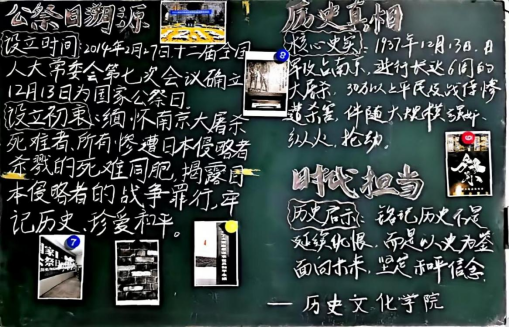 公祭日溯源
设立时间：2014年2月27日,十二届全国
人大常委会第七次会议确立
12月13日为国家公祭日.
设立初衷：缅怀南京大屠杀
死难者,所有惨遭日本侵略者
杀戮的死难同胞,揭露日
本侵略者的战争罪行,牢
记历史、珍爱和平。
历史真相
核心史实：1937年12月13日,日
军攻占南京,进行长达6周的
大屠杀.30万以上平民及战俘惨
遭杀害,伴随大规模强奸、
纵火,抢劫.
祭
时代担当
历史启示：铭记历史不是
延续仇恨,而是以史为鉴
面向未来,坚定和平信念.
— 历史文化学院